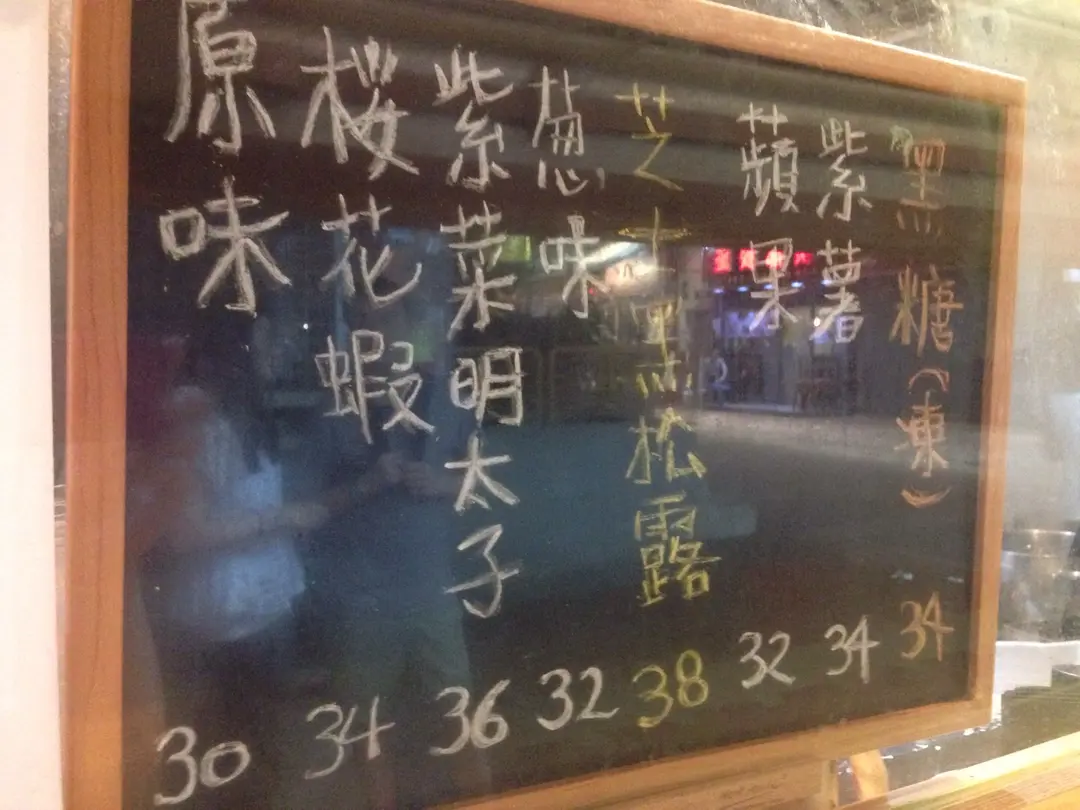 原味 30
桜花蝦 34
紫菜明太子 36
葱味 32
芝士黑松露 38
蘋果 32
紫薯 34
黑糖(凍) 34